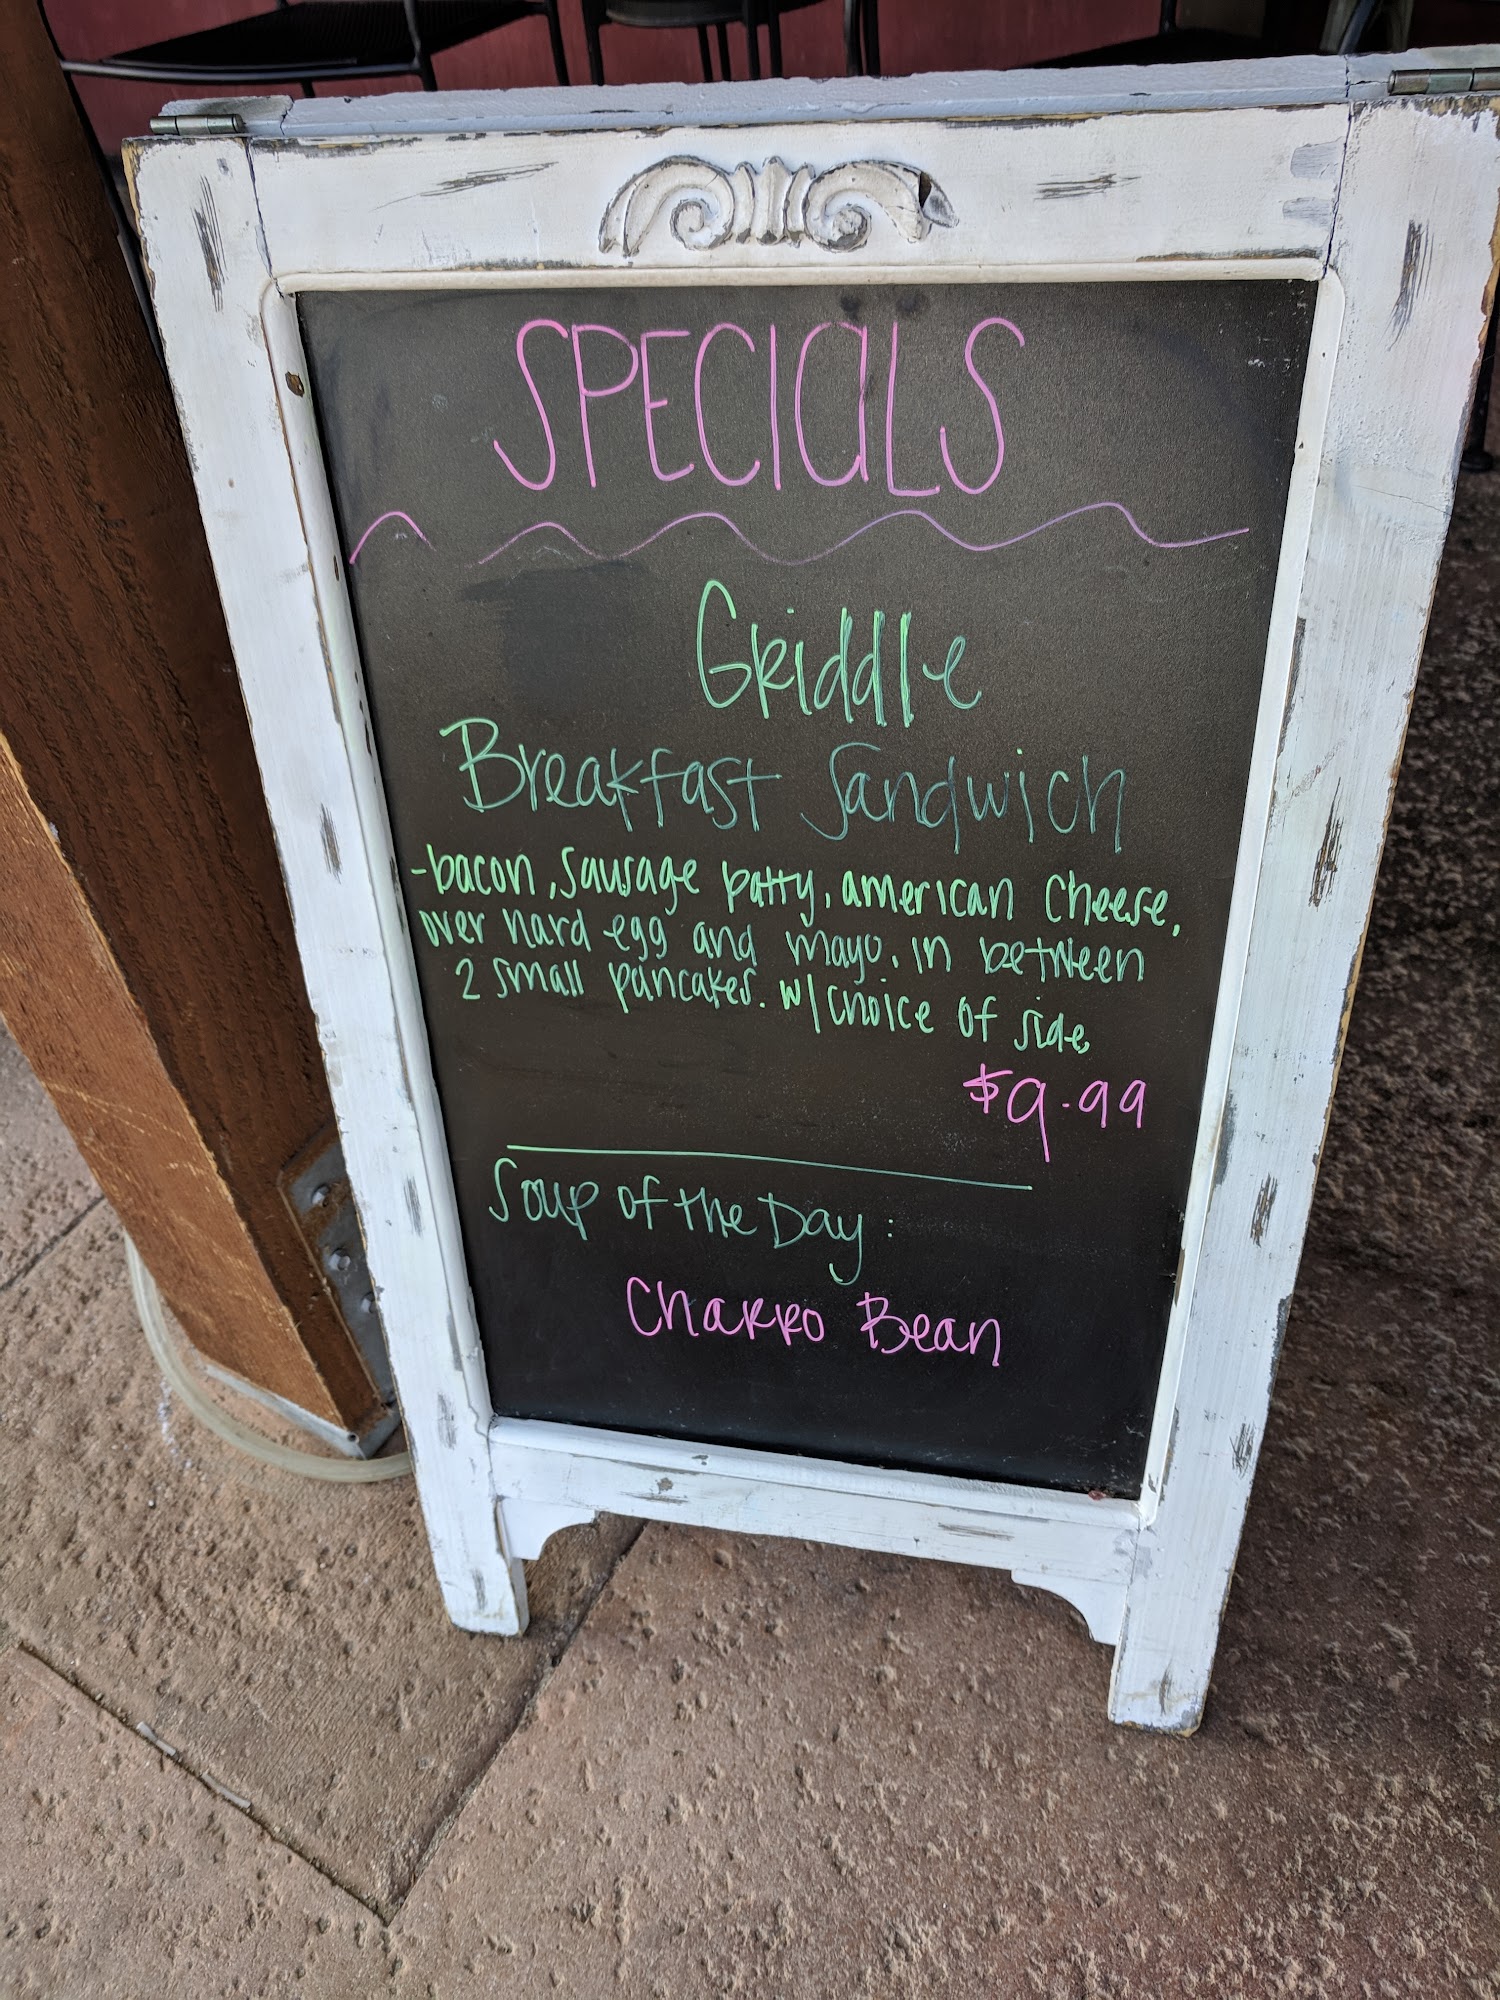 SPECIALS
Griddle
Breakfast Sandwich
-bacon, sausage patty, american cheese,
over hard egg and mayo. in between
2 small pancakes. w/choice of side.
$9.99
Soup of the Day:
Charro Bean